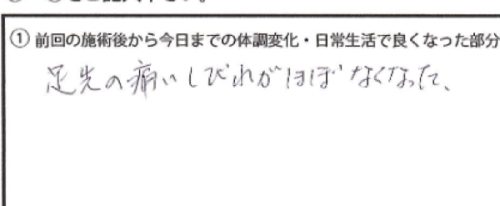 ① 前回の施術後から今日までの体調変化・日常生活で良くなった部分
足先の痛いしびれがほぼなくなった、